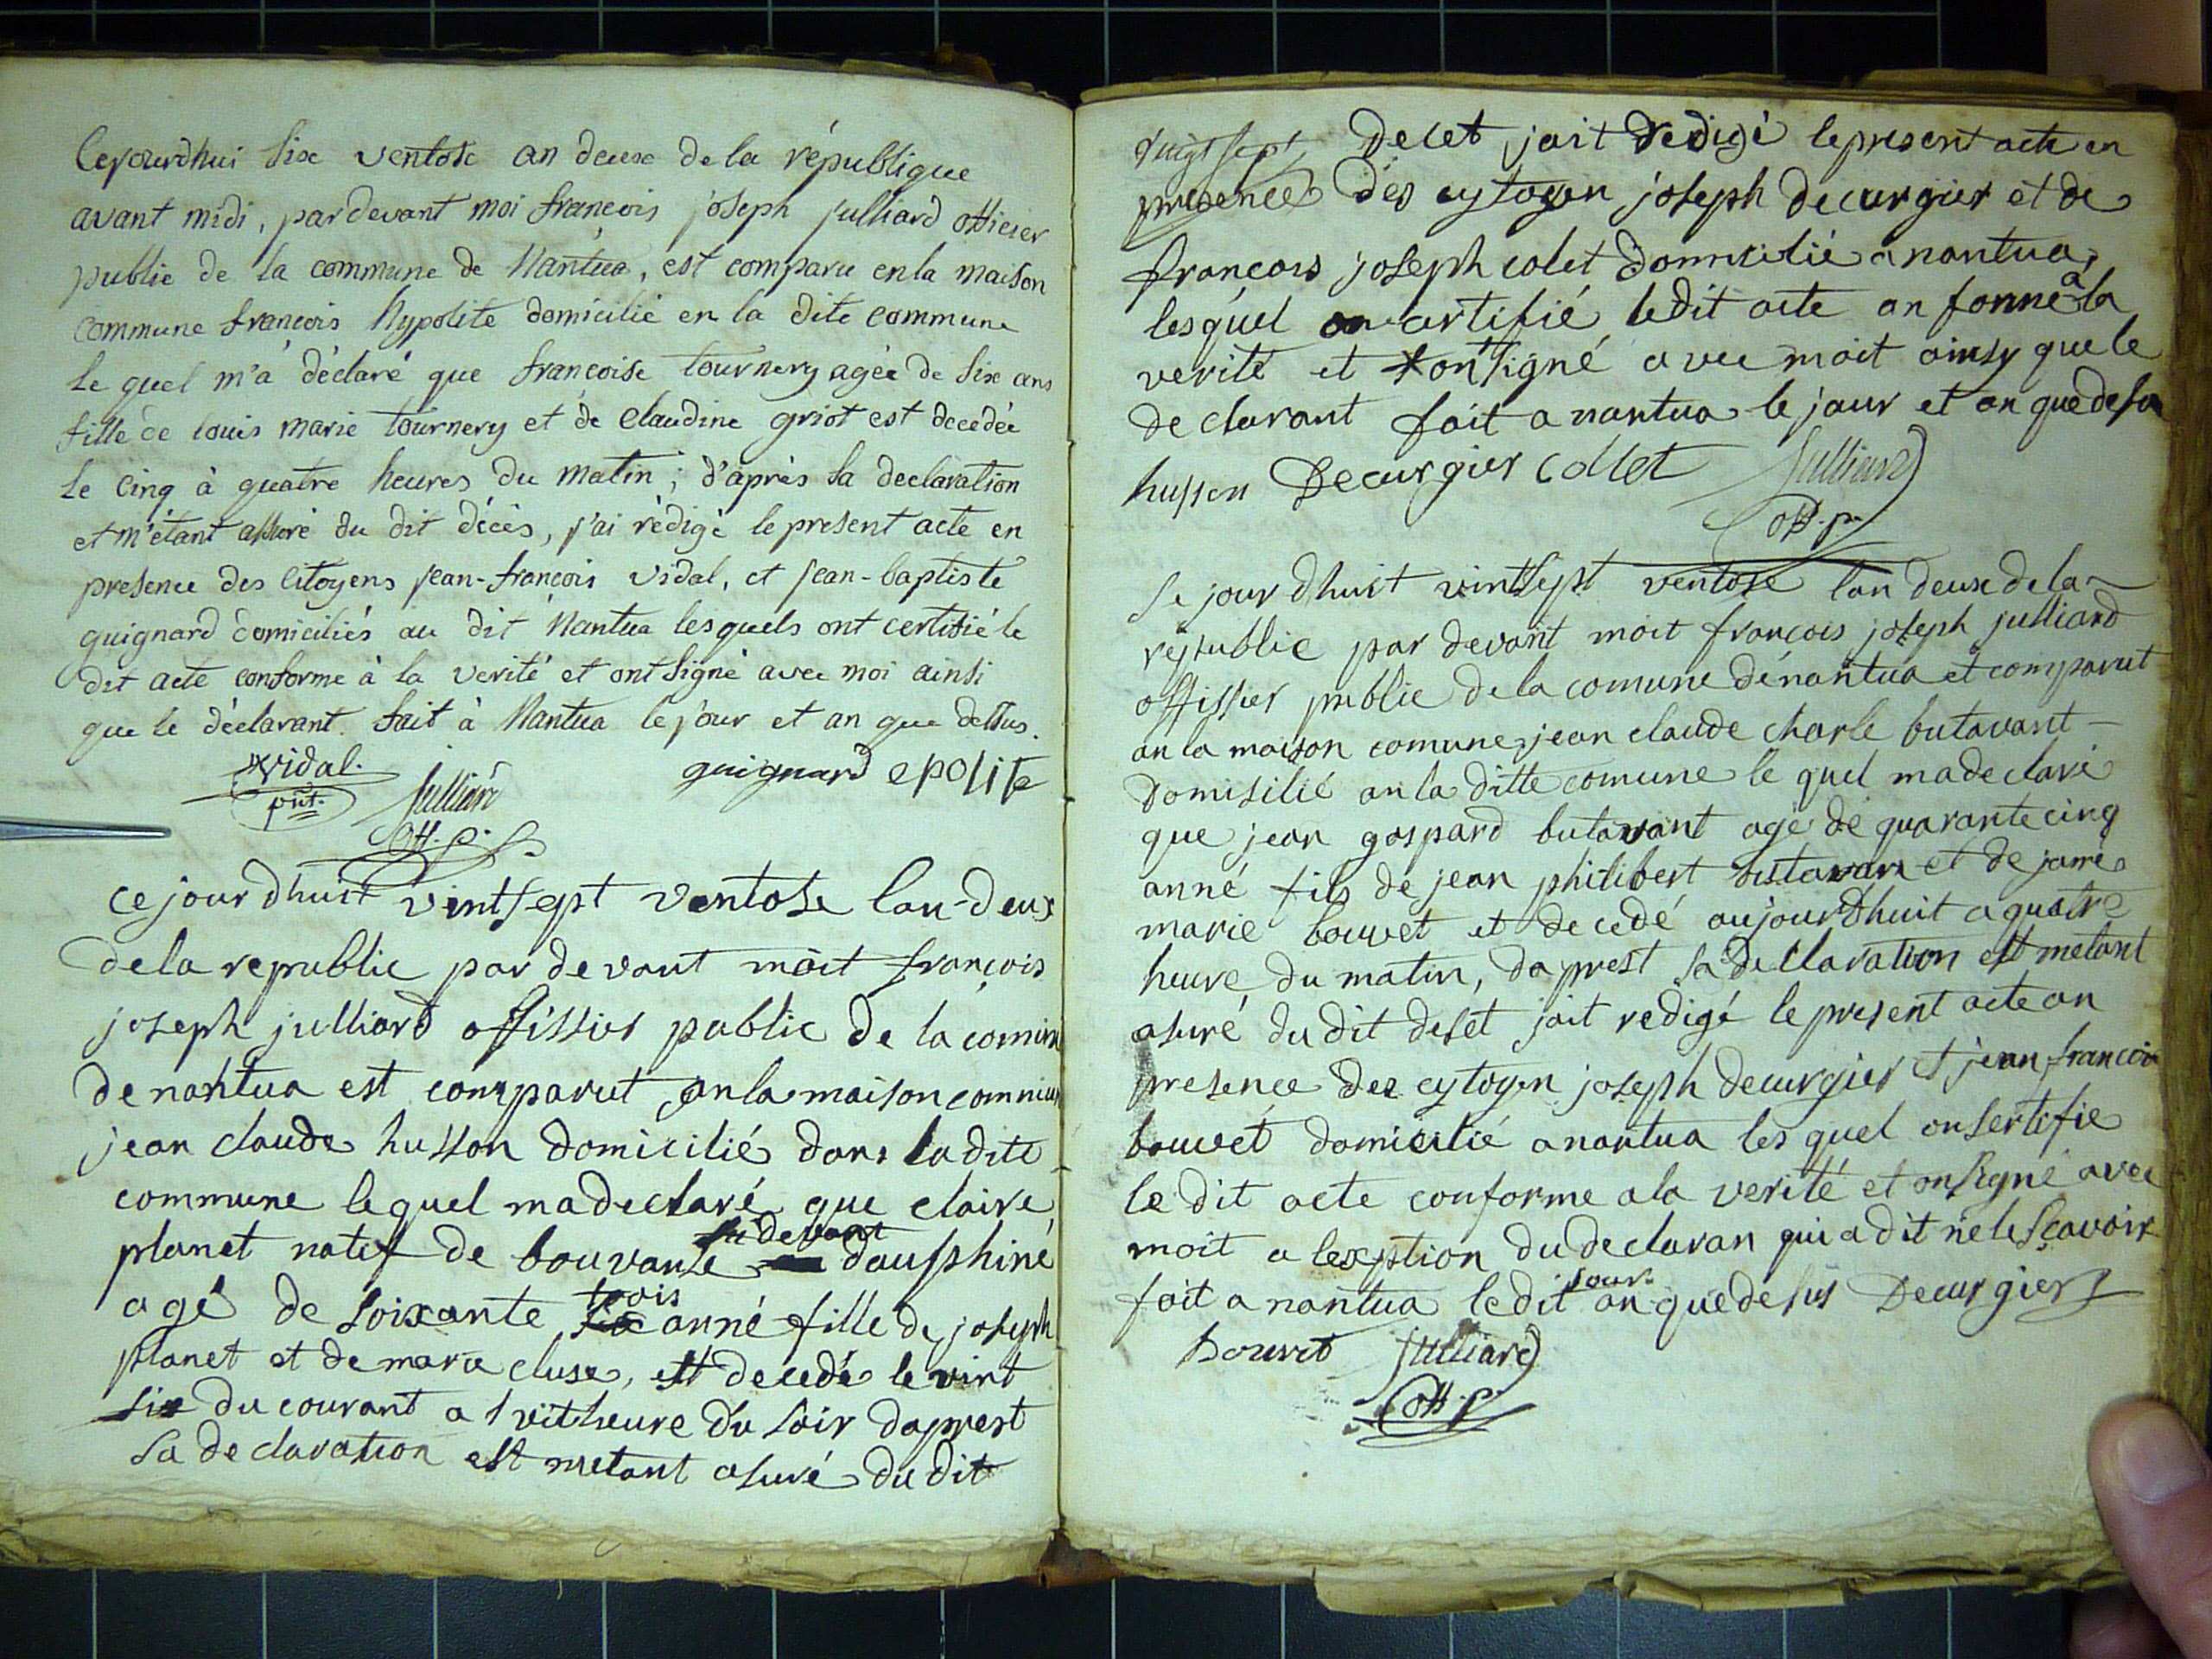 Cejourdhui six ventose an deux de la république
avant midi, pardevant moi françois joseph julliard officier
public de la commune de Nantua, est comparu en la maison
commune françois hypolite domicilié en la dite commune
le quel m'a déclaré que françoise tournery agée de six ans
fille de louis marie tournery et de claudine griot est decedée
le cinq à quatre heures du matin; d'après sa declaration
et m'étant assuré du dit décès, j'ai rédigé le present acte en
presence des citoyens jean-françois vidal, et jean-baptiste
guignard domiciliés au dit Nantua lesquels ont certifié le
dit acte conforme à la verité et ont signé avec moi ainsi
que le déclarant. fait à Nantua le jour et an que dessus.
vidal. guignard epolite
julliard
off. p.
ce jour dhuit vintsept ventose lan-deux
de la republic par devant moit françois
joseph julliard offissier public de la comune
de nantua est comparut an la maison commune
jean claude husson domicilié dans la dite
commune lequel ma declaré que claire
planet natif de bouvante su devant dauphiné
agé de soixante trois anné fille de joseph
planet et de marie cluse, est decedé le vint
six du courant a 1 vit heure du soir daprest
sa declaration est metant asuré du dit
vingt sept Decet jait redigé le present acte en
presence des cytoyen joseph decurgier et de
francois joseph colet domicilié a nantua,
lesquel on certifié ledit acte on forme a la
verité et son signé avec moit ainsy que le
declarant fait a nantua le jour et an que desu
husson Decurgier collet julliard
off. p.
Se jour dhuit vintsept ventose lan deux de la
republic par devant moit francois joseph julliard
offissier public de la comune de nantua et comparut
an la maison comune jean claude charle butavant
domisilié an la ditte comune le quel ma declaré
que jean gaspard butavant agé de quarante cinq
anné fils de jean philibert butavan et de jane
marie bouvet et decedé aujourdhuit a quatre
heure du matin, daprest sa declaration est metant
asuré du dit deset jait redigé le present acte an
presence des cytoyen joseph decurgier et jean francois
bouvet domicilié a nantua les quel on sertifie
le dit acte conforme a la verité et on signé avec
moit a lexption du declaran qui a dit ne le sçavoir
fait a nantua le dit jour an que desus Decurgier
bouvet julliard
off. p.